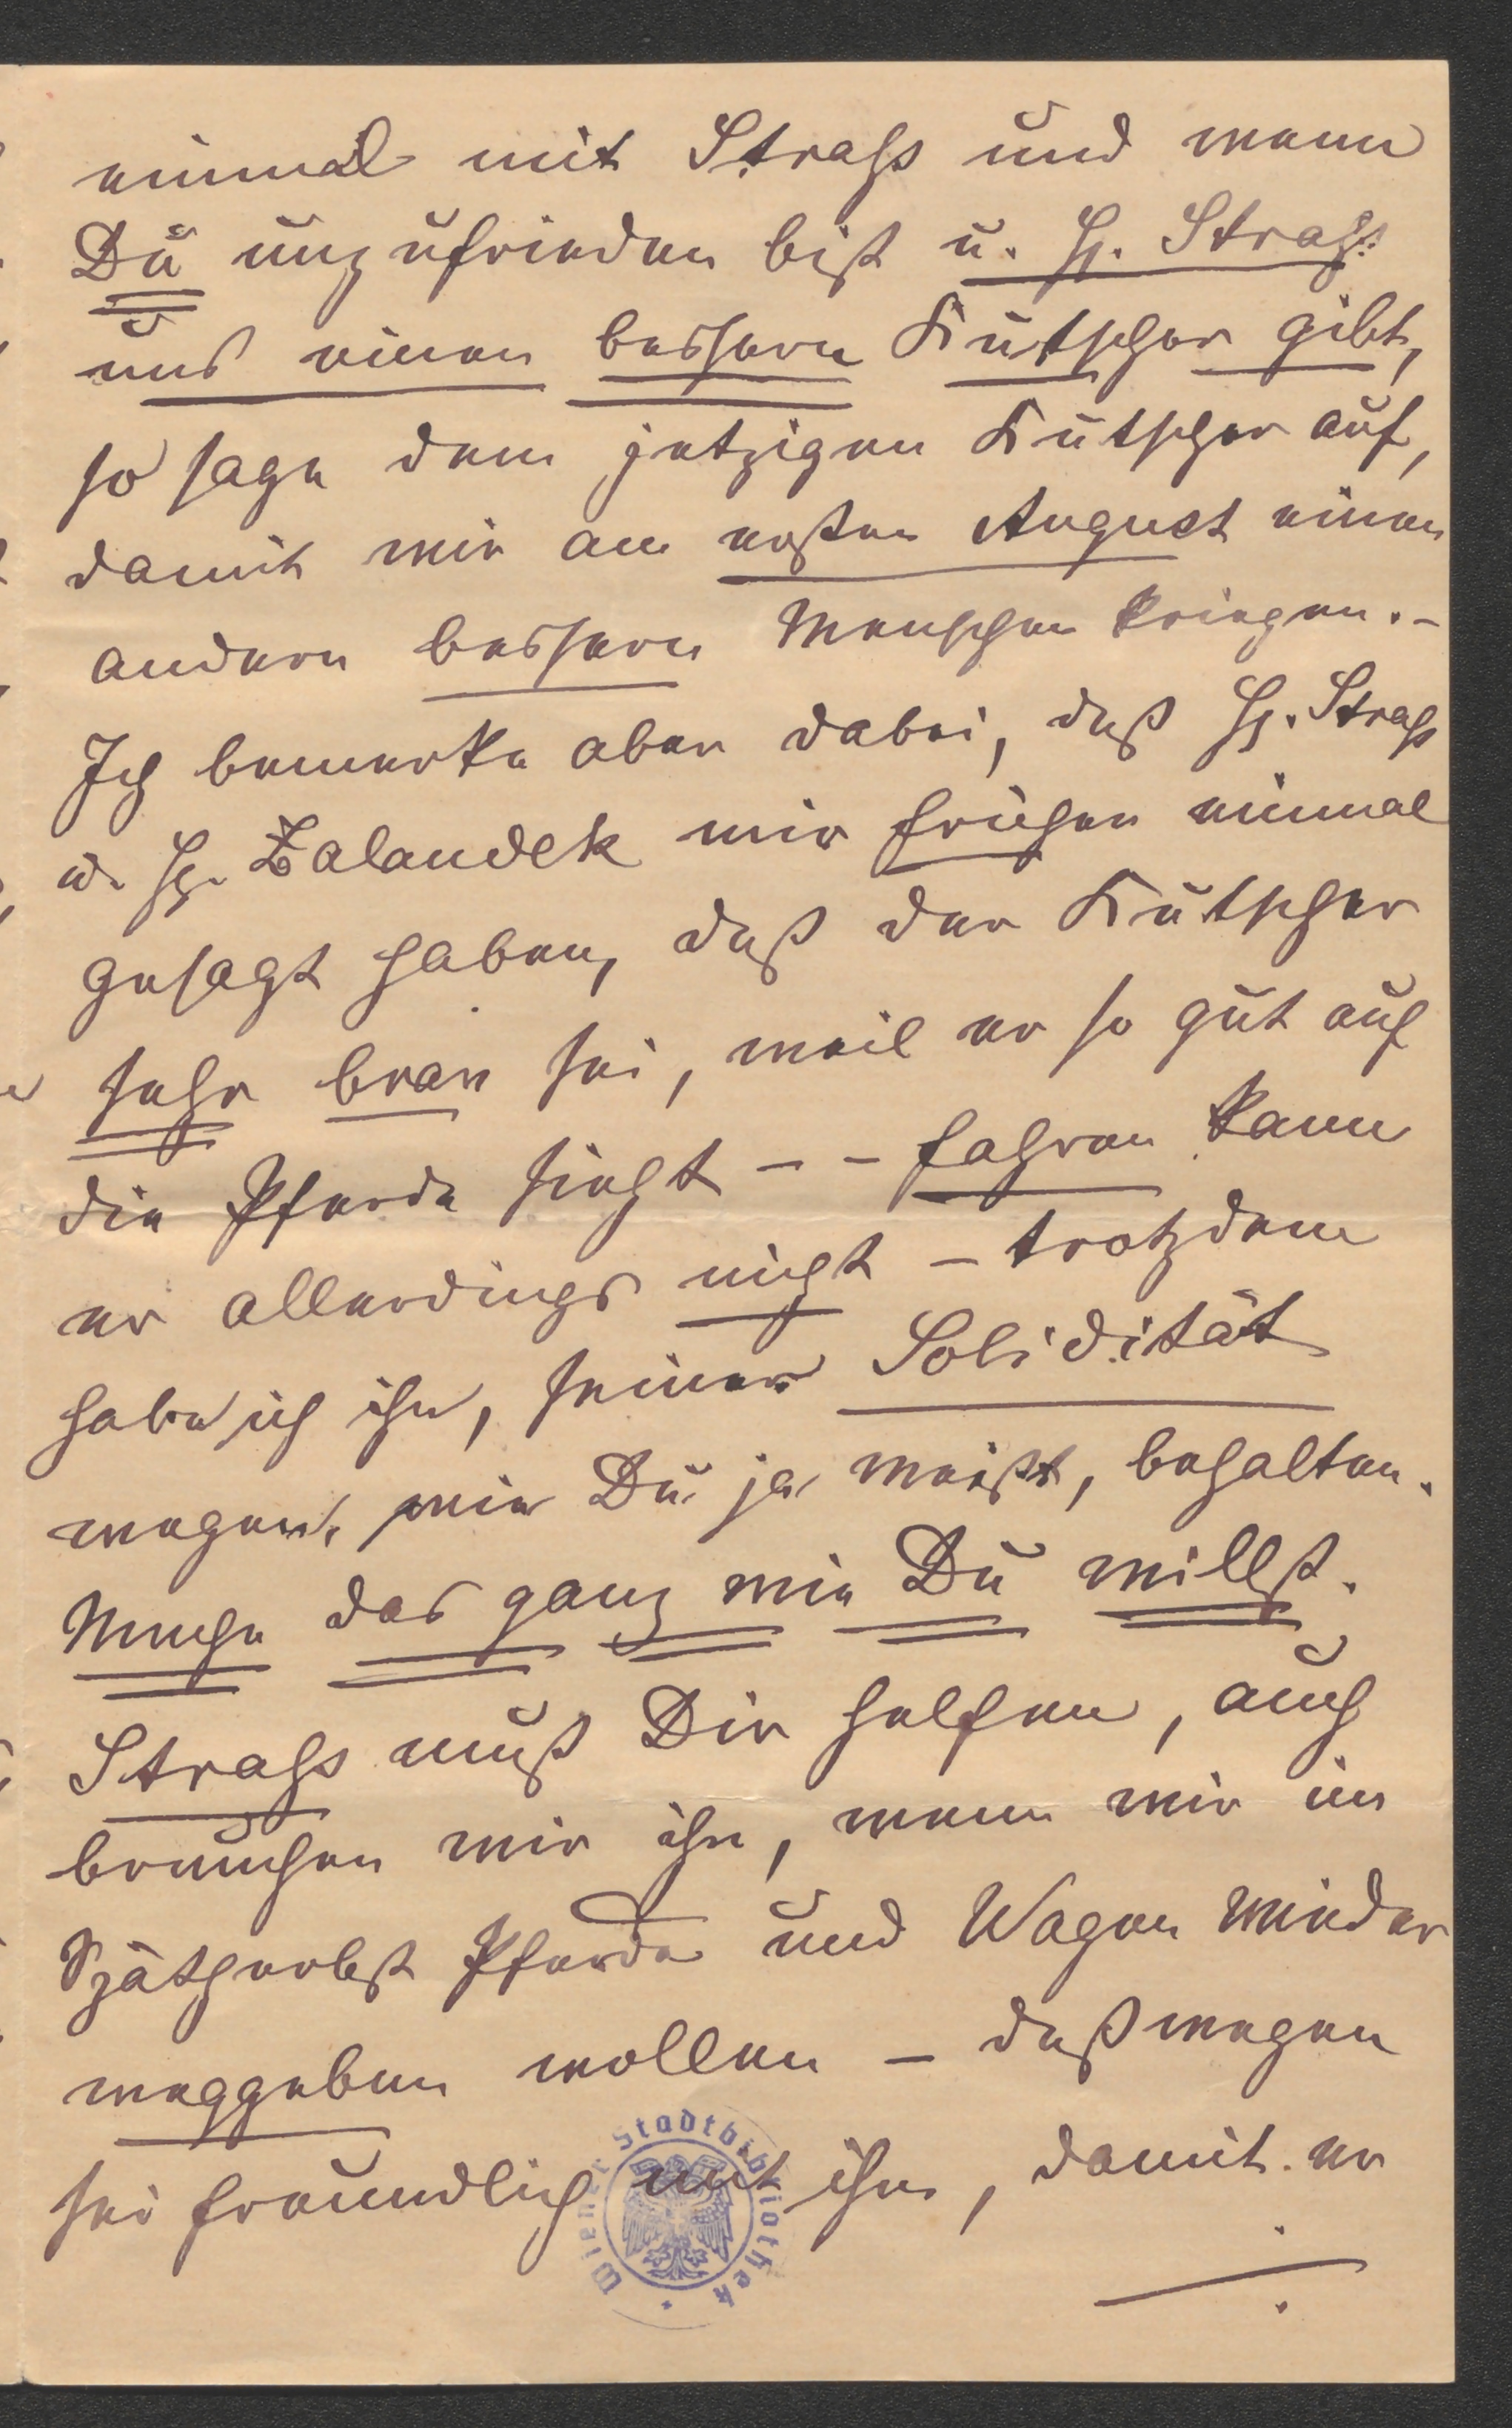 einmal mit Straſs und wenn
Du unzufrieden bist u. H. Straſs
uns einen bessern Kutscher gibt,
so sage dem jetzigen Kutscher auf,
damit wir am ersten August einen
andern bessern Menschen kriegen.–
Ich bemerke aber dabei, daß H. Straſs
u. H. Zalaudek mir früher einmal
gesagt haben, daß der Kutscher
sehr brav sei, weil er so gut auf
die Pferde sieht – – fahren kann
er allerdings nicht – trotzdem
habe ich ihn, seiner Solidität
wegen, wie Du ja weißt, behalten.
Mache das ganz wie Du willst.
Straſs muß Dir helfen, auch
brauchen wir ihn, wenn wir im
Spätherbst Pferde und Wagen wieder
weggeben wollen – deßwegen
sei freundlich mit ihm, damit er
Wiener Stadtbibliothek